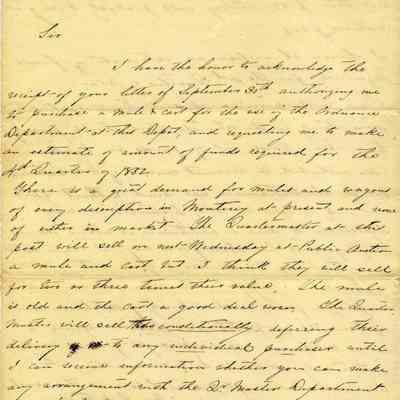 Sir
I have the honor to acknowledge the
receipt of your letter of September 30th authorizing me
to purchase a mule & cart for the use of the Ordnance
Department at this Depot, and requesting me to make
an estimate of amount of funds required for the
4d Quarter of
There is a great demand for mules and wagons
of every description in Monterey at present and none
of either in market. The Quartermaster at this
post will sell on next Wednesday at Public Auction
a mule and cart but I think they will sell
for two or three times their value. The mule
is old and the cart a good deal worn. The Quarter
Master will sell this conditionally, deferring their
delivery to any individual purchaser until
I can receive information whether you can make
any arrangement with the Qr Master Department